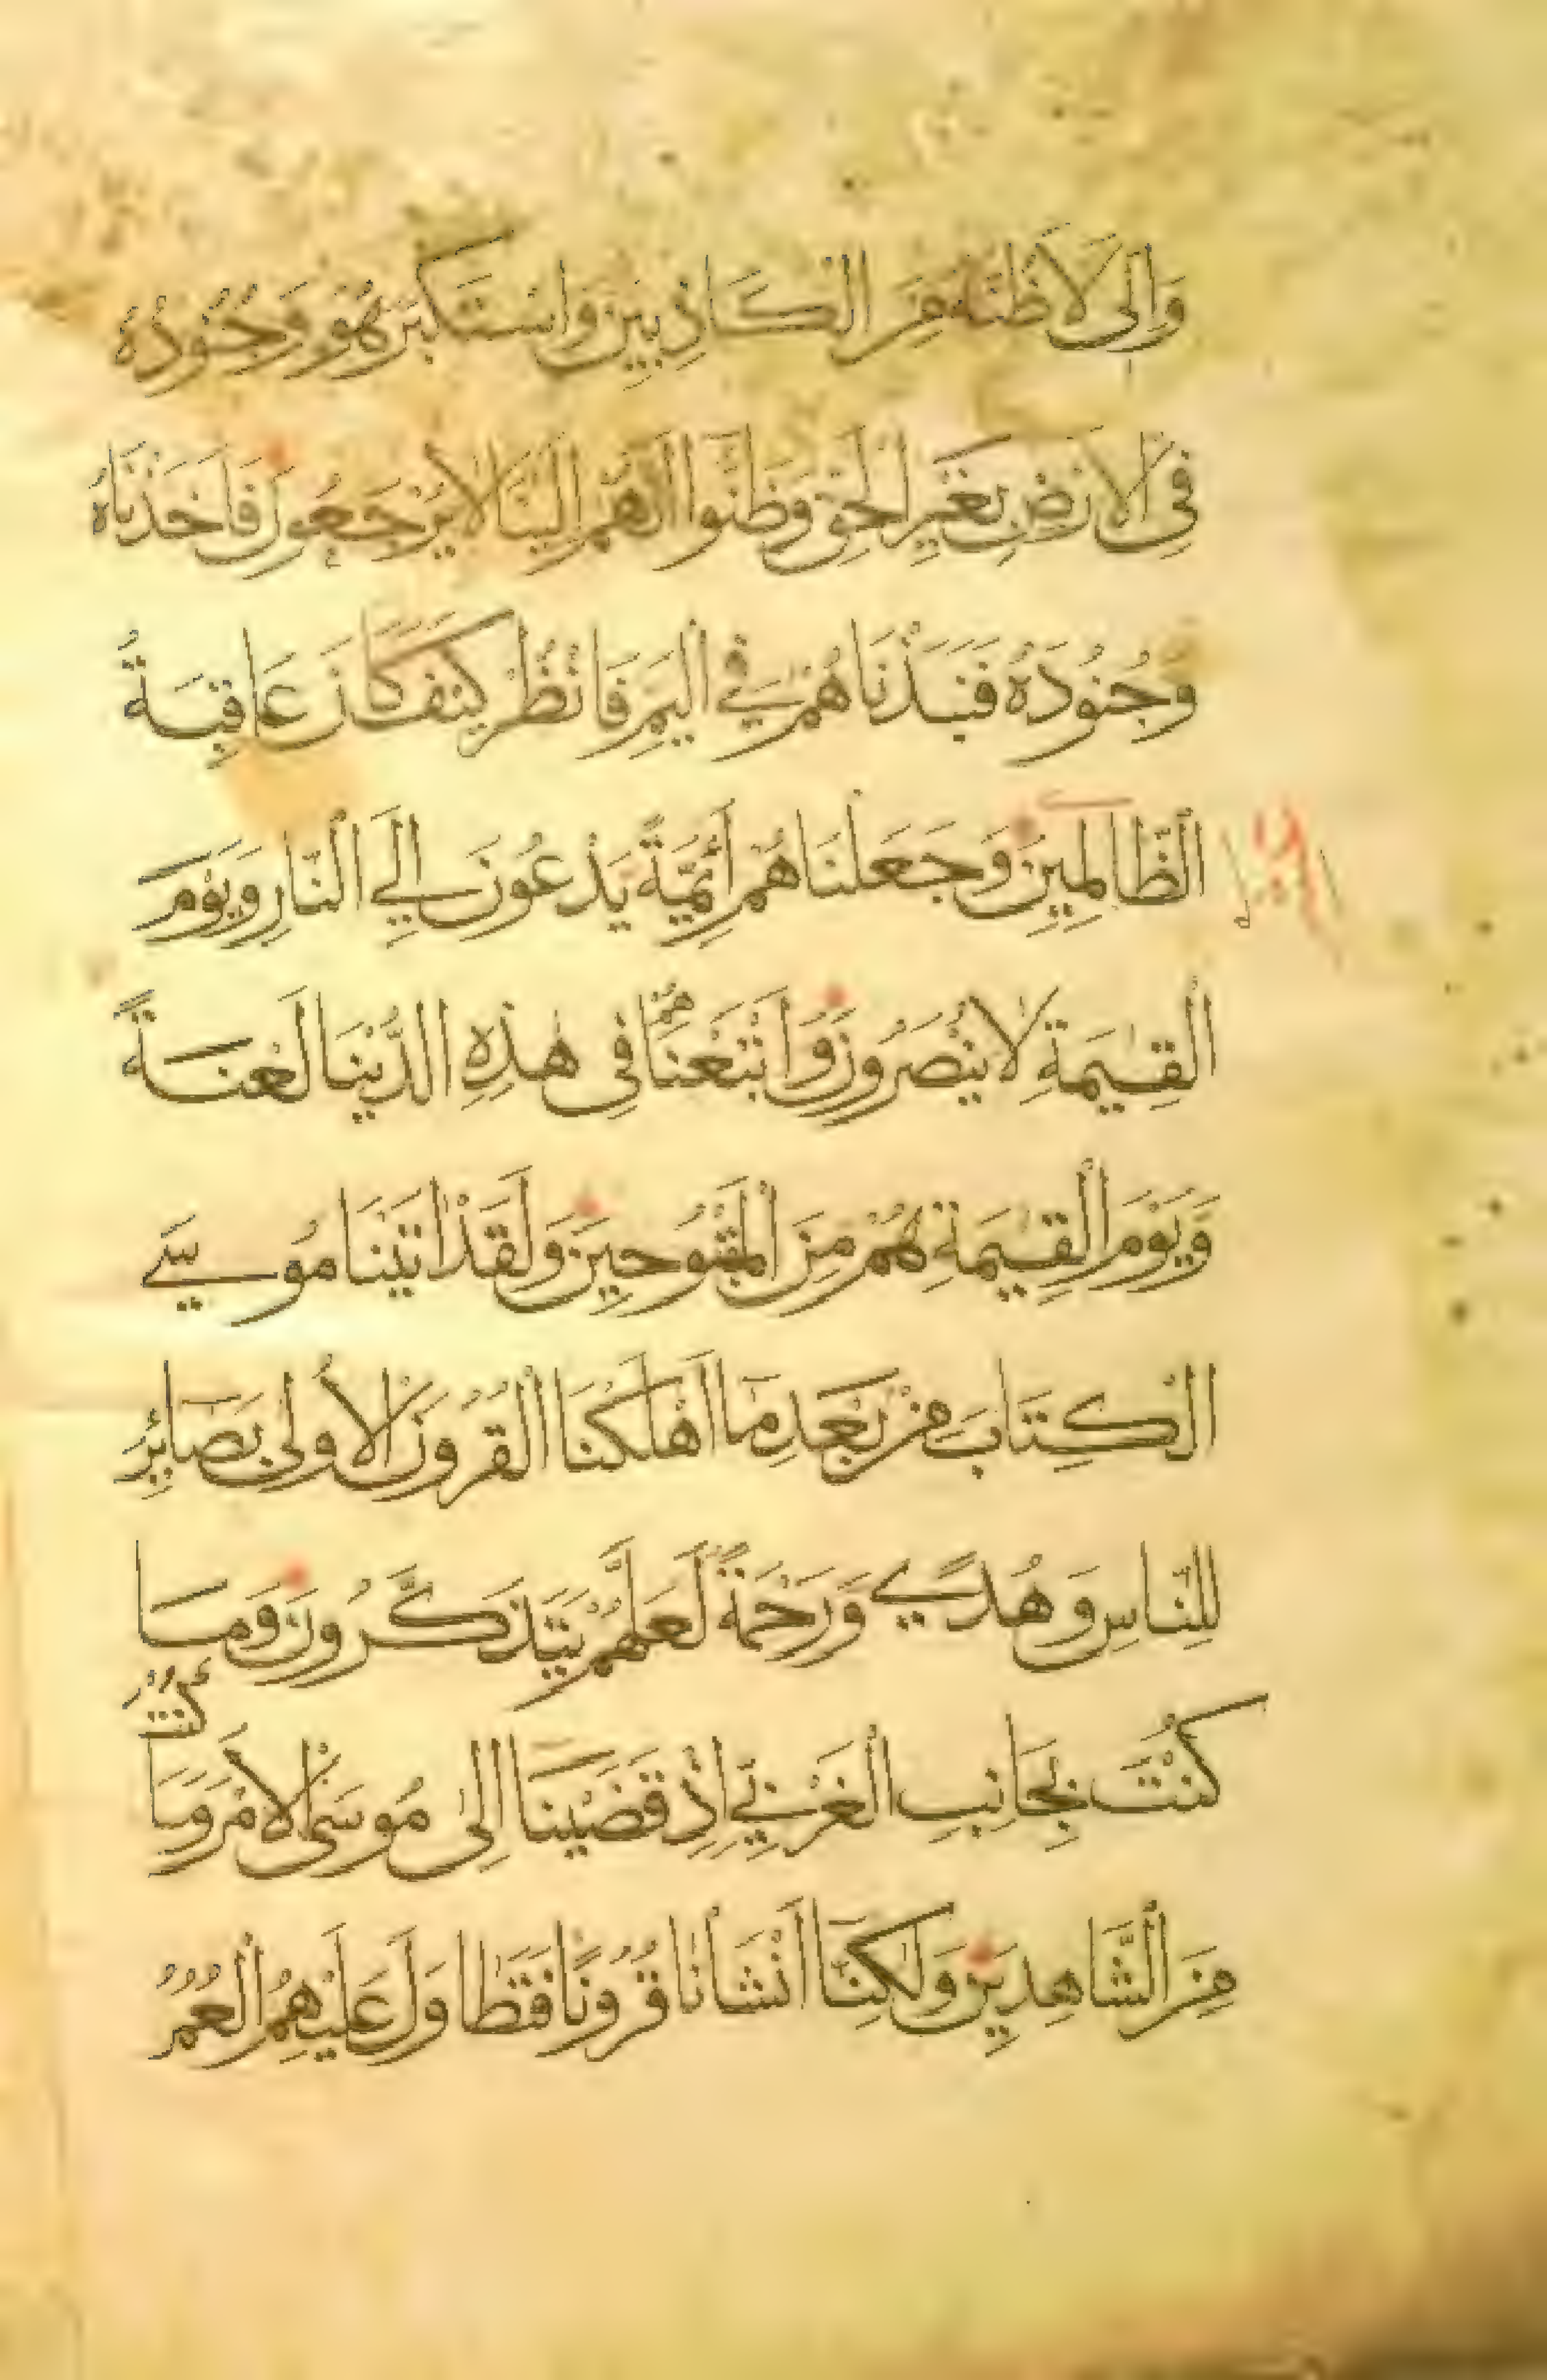 وَاِنّى لَاَظُنُّهُ مِنَ الْكَاذِبِينَ وَاسْتَكْبَرَ هُوَ وَجُنُودُهُ
فِى الْاَرْضِ بِغَيْرِ الْحَقِّ وَظَنُّوا اَنَّهُمْ اِلَيْنَا لَا يُرْجَعُونَ فَاَخَذْنَاهُ
وَجُنُودَهُ فَنَبَذْنَاهُمْ فِي الْيَمِّ فَانْظُرْ كَيْفَ كَانَ عَاقِبَةُ
الظَّالِمِينَ وَجَعَلْنَاهُمْ اَئِمَّةً يَدْعُونَ اِلَي النَّارِ وَيَوْمَ
الْقِيٰمَةِ لَا يُنْصَرُونَ وَاَتْبَعْنَاهُمْ فِى هٰذِهِ الدُّنْيَا لَعْنَةً
وَيَوْمَ الْقِيٰمَةِ هُمْ مِنَ الْمَقْبُوحِينَ وَلَقَدْ اٰتَيْنَا مُوسَي
الْكِتَابَ مِنْ بَعْدِ مَا اَهْلَكْنَا الْقُرُونَ الْاُولٰى بَصَائِرَ
لِلنَّاسِ وَهُدًي وَرَحْمَةً لَعَلَّهُمْ يَتَذَكَّرُونَ وَمَا
كُنْتَ بِجَانِبِ الْغَرْبِيِّ اِذْ قَضَيْنَا اِلٰى مُوسَى الْاَمْرَ وَمَا كُنْتَ
مِنَ الشَّاهِدِينَ وَلٰكِنَّا اَنْشَأْنَا قُرُونًا فَتَطَاوَلَ عَلَيْهِمُ الْعُمُرُ